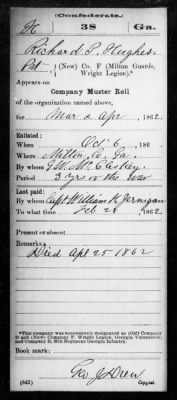 (Confederate.)
H 38 Ga.
Richard P. Hughes
Pvt (New) Co. F (Milton Guards, Wright Legion).*
Appears on
Company Muster Roll
of the organization named above,
for Mar & Apr, 1862.
Enlisted:
When Oct 6, 186
Where Milton Co. Ga.
By whom G W McCleskey
Period 3 yrs or the war
Last paid:
By whom Capt William K. Jernigan
To what time Feb 28, 1862
Present or absent
Remarks:
Died Apl 25 1862
*This company was successively designated as (Old) Company D and (New) Company F, Wright Legion, Georgia Volunteers; and Company H, 38th Regiment Georgia Infantry.
Book mark:
Geo. J. Drew
(642) Copyist.